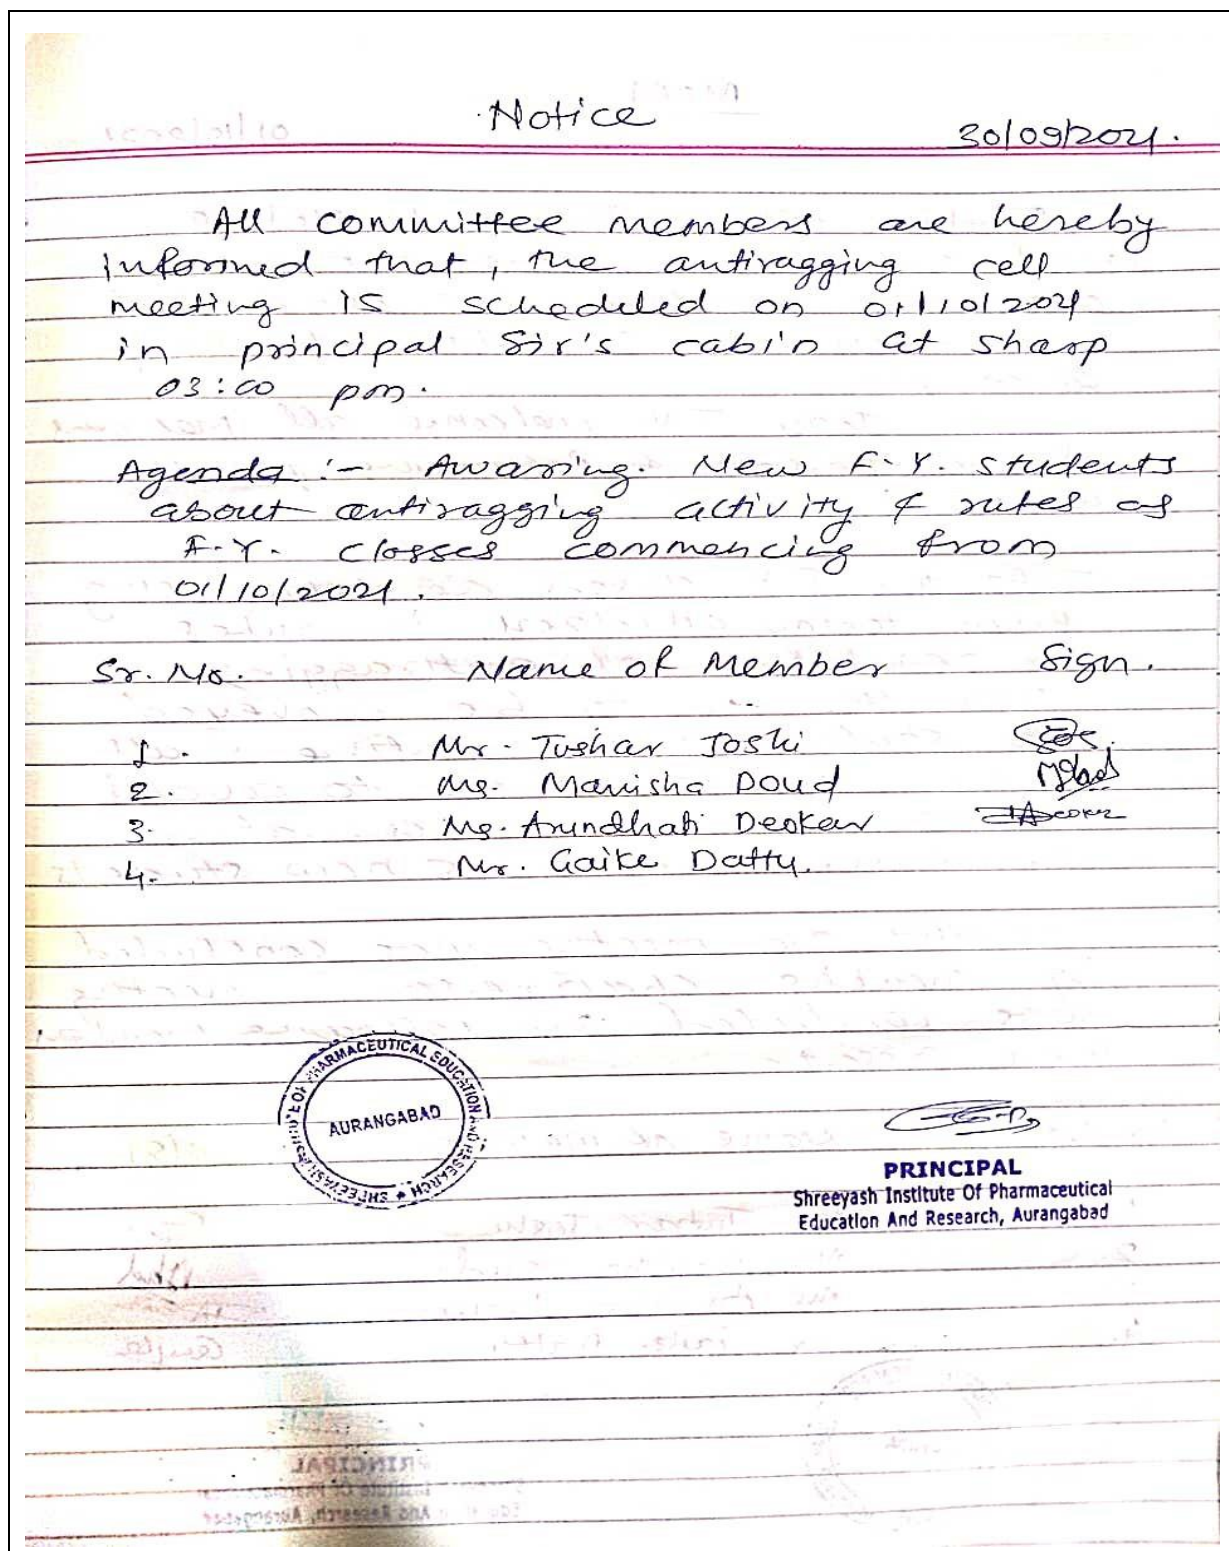 Notice
30/09/2021.
All committee members are hereby
informed that, the antiragging cell
meeting is scheduled on 01/10/2021
in principal Sir's cabin at sharp
03:00 pm.
Agenda :- Awaring. New F.Y. students
about antiragging activity & rules as
F.Y. classes commencing from
01/10/2021.
Sr. No. Name of Member Sign.
1. Mr. Tushar Joshi
2. Ms. Manisha Doud
3. Ms. Arundhati Deokar
4. Mr. Gaike Datty.
SHREEYASH INSTITUTE OF PHARMACEUTICAL EDUCATION AND RESEARCH
AURANGABAD
PRINCIPAL
Shreeyash Institute Of Pharmaceutical
Education And Research, Aurangabad